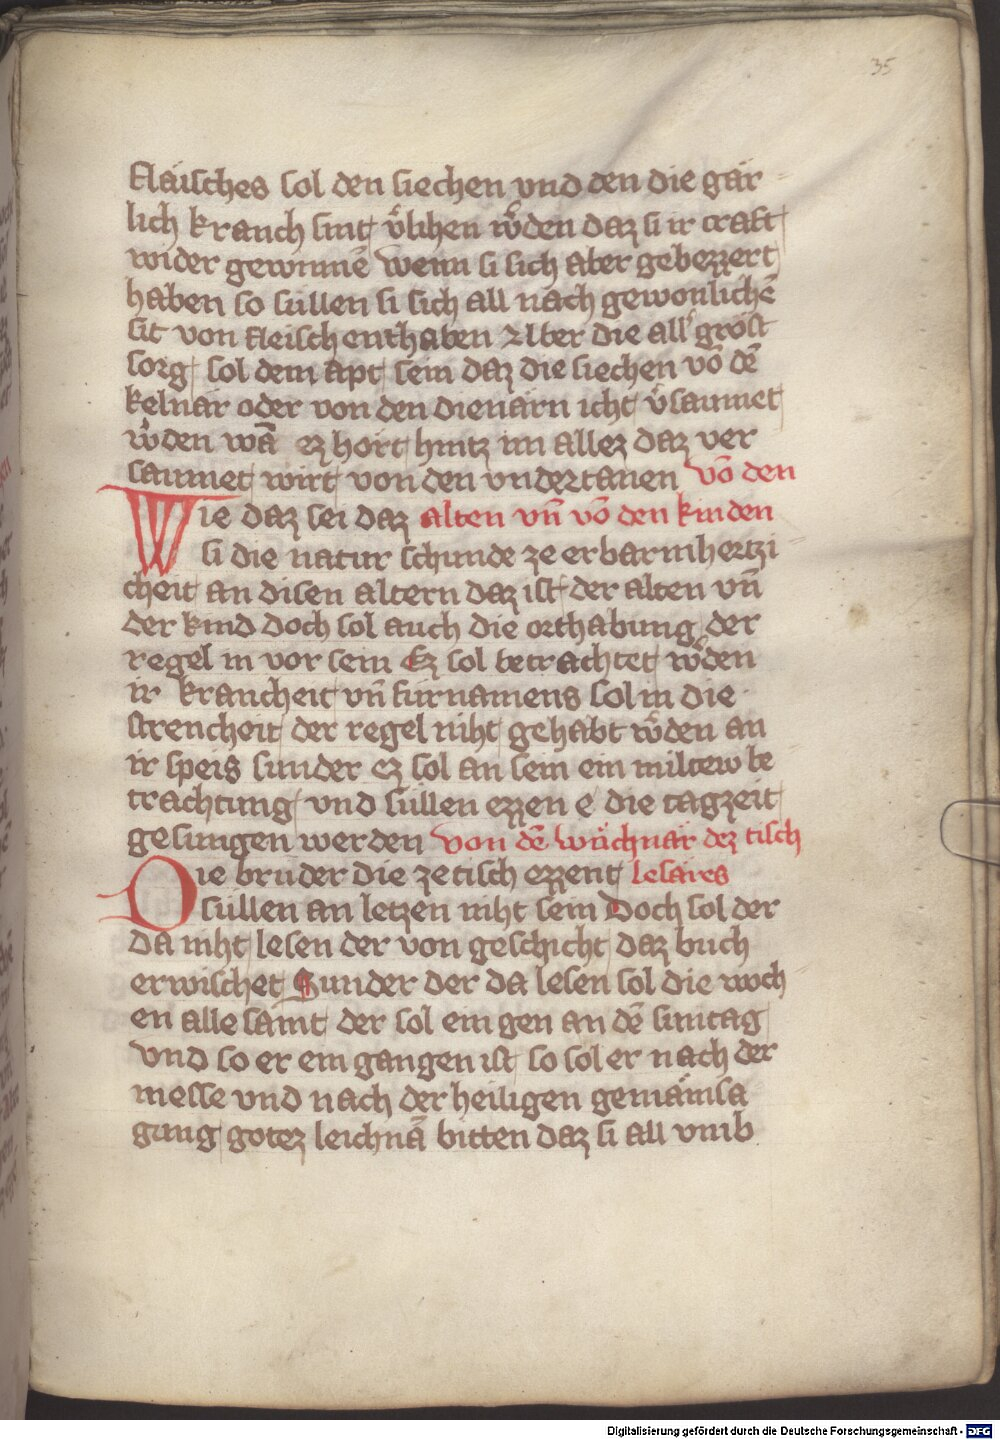 35
flaisches sol den siechen vnd den die gär
lich kranch sint v͛lihen w͛den daz si ir craft
wider gewinnē wenn si sich aber gebezzert
haben so süllen si sich all nach gewonlichē
sit von fleisch enthaben Aber die all͛ gröst
sorg sol dem apt sein daz die siechen vō dē
kelnär oder von den dienärn icht v͛saumet
w͛den wā ez hört hintz im allez daz ver
saumet wirt von den vndertanen vō den
Wie daz sei daz alten vn̄ vō den kinden
si die natur schünde ze erbarmhertzi
cheit an disen altern daz ist der alten vn̄
der kind doch sol auch die orthabung der
regel in vor sein Ez sol betrachtet w͛den
ir krancheit vn̄ fürnamens sol in die
strencheit der regel niht gehabt w͛den an
ir speis sunder ez sol an sein ein miltew be
trachtung vnd süllen ezzen e die tagzeit
gesungen werden von dē wüchnär dez tisch
Die brüder die ze tisch ezzent lesäres
süllen an letzen niht sein Doch sol der
da niht lesen der von geschicht daz buch
erwischet Sunder der da lesen sol die woch
en alle samt der sol ein gen an dē suntag
vnd so er ein gangen ist so sol er nach der
messe vnd nach der heiligen gemäinsa
gung gotez leichnā bitten daz si all vmb
Digitalisierung gefördert durch die Deutsche Forschungsgemeinschaft - DFG